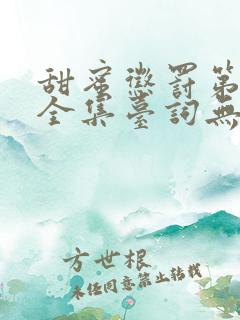 甜蜜懲罰第
全集臺詞無
方世根
未经同意禁止转载